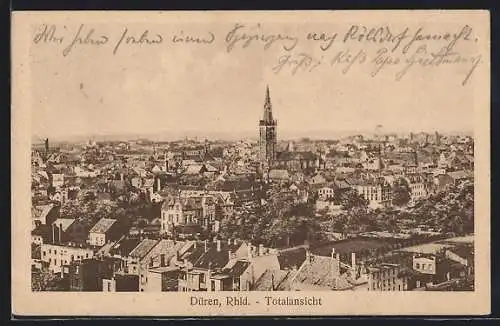 Wir haben soeben einen Spaziergang nach Rölldorf gemacht.
Gruß, Küß Papa
Düren, Rhld. - Totalansicht